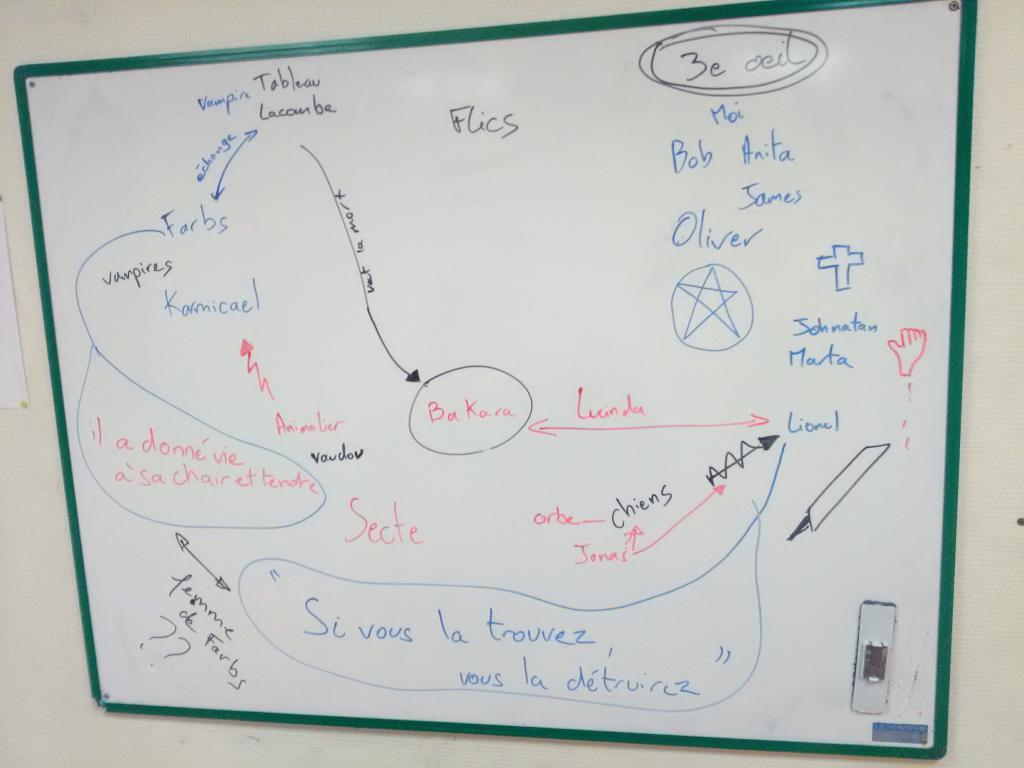 3e oeil
vampire Tableau
Lacombe
Flics
échange
Moi
Bob Anita
James
Farbs
Oliver
vampires
veut la mort
Karmicael
Johnatan
Marta
BaKara
Lucinda
Lionel
Animalier
vaudou
il a donné vie
à sa chair et tendre
Secte
orbe — chiens
Jonas
femme
de Farbs
??
" Si vous la trouvez,
vous la détruirez "